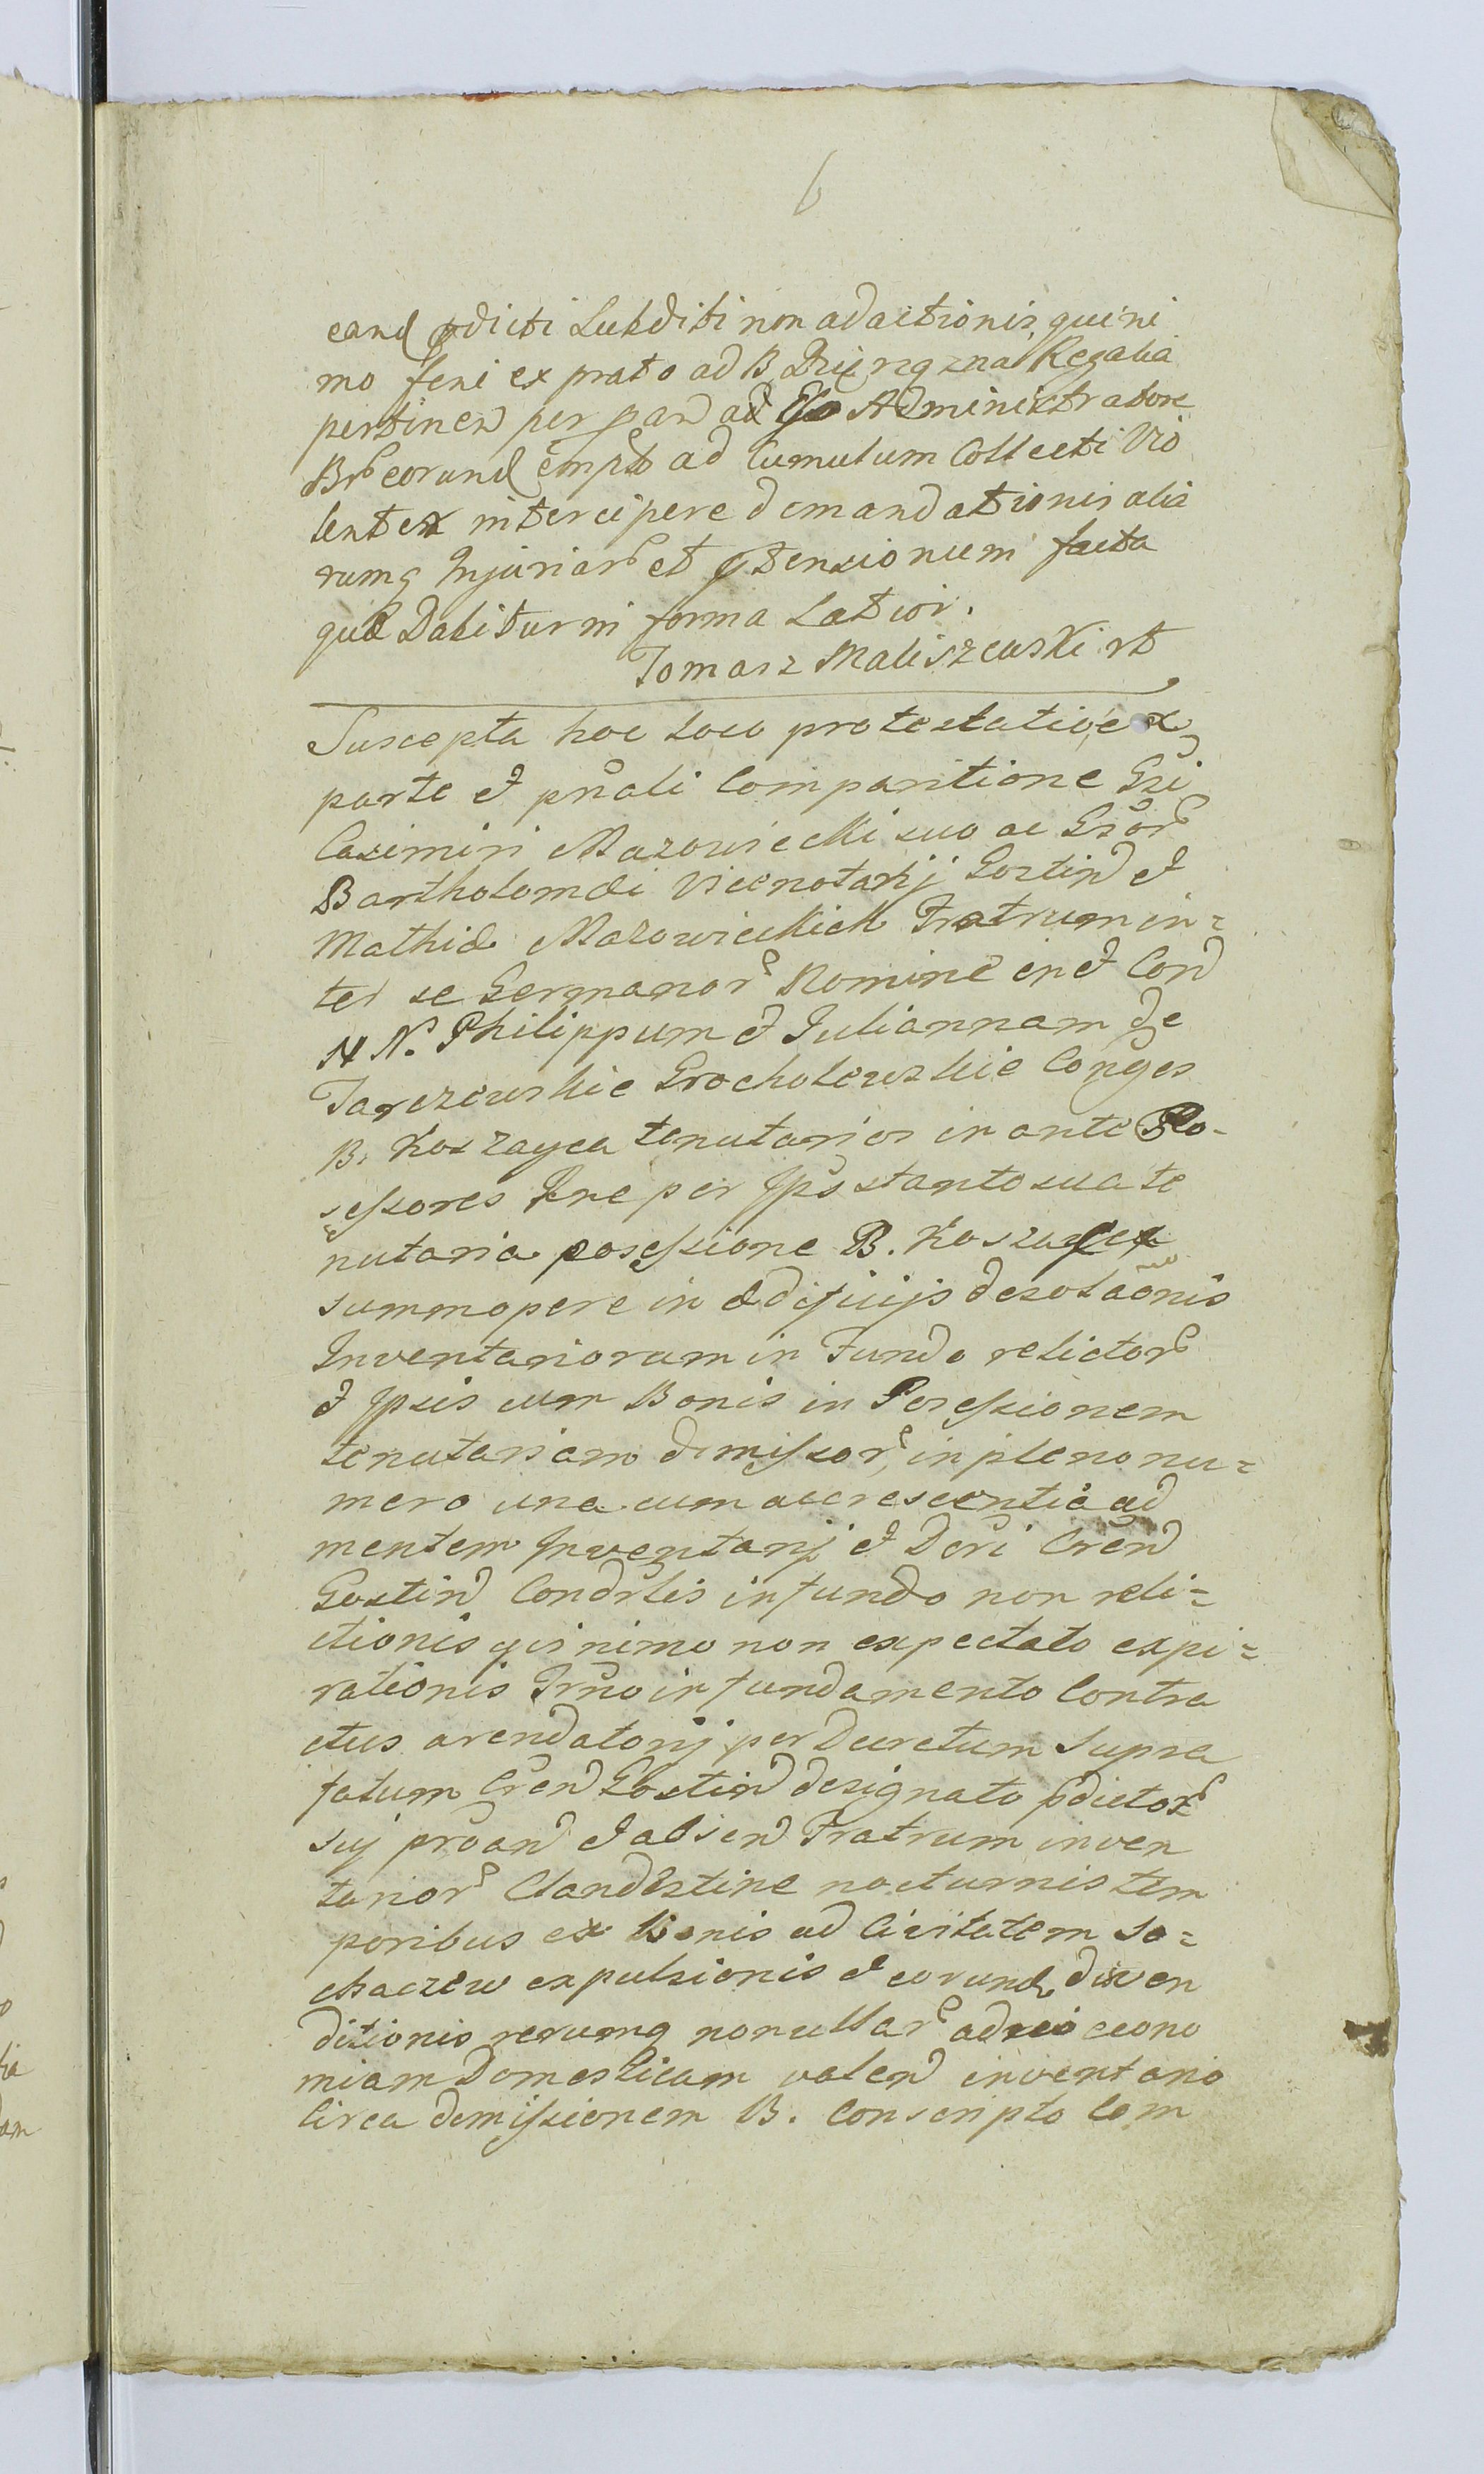 6
eand pdicti Subditi non adactionis, quini
mo feni ex prato ad B. Regalia
pertinen per pan ad Administratore
Br eorund empto ad Cumulum Collecti Vio
lenter intercipere demandationis alia
rumq Injuriar et ptensionum facta
quæ Dabitur in forma Latior.
Tomasz Maliszewski rt
Suscepta hoc loco protestatio ex
parte et pnali Comparitione Gsi
Casimiri Mazowiecki suo ac Gsor
Bartholomæi Vicenotarij Gostin et
Mathiæ Mazowieckich Fratrum in=
ter se Germanor Nomine in et Con
N N. Philippum et Juliannam de
Jarczewskie Grocholewskie Conges
B. Koszayca tenutarios in ante Po-
sessores Ane per Ipos stante sua te
nutaria posessione B. Koszayca
summopere in ædificijs desolaonis
Inventariorum in Fundo relictor
et Ipsis cum Bonis in Posessionem
tenutariam dimissor, in pleno nu=
mero una cum accrescentia ad
mentem Inventarij et Dcri Cren
Gostin Condrlis in fundo non reli=
ctionis qinimo non expectato expi=
rationis Trno in fundamento Contra
ctus arendatorij per Decretum Supra
fatum Cren Gostin designato pdictor
suj proan et absen Fratrum inven
tarior Clandestine nocturnis tem
poribus ex Bonis ad Civitatem So=
chaczew expulsionis et eorund diven
ditionis rerumq nonullar ad œcono
miam Domesticam valen inventario
Circa demissionem B. Conscripto Com